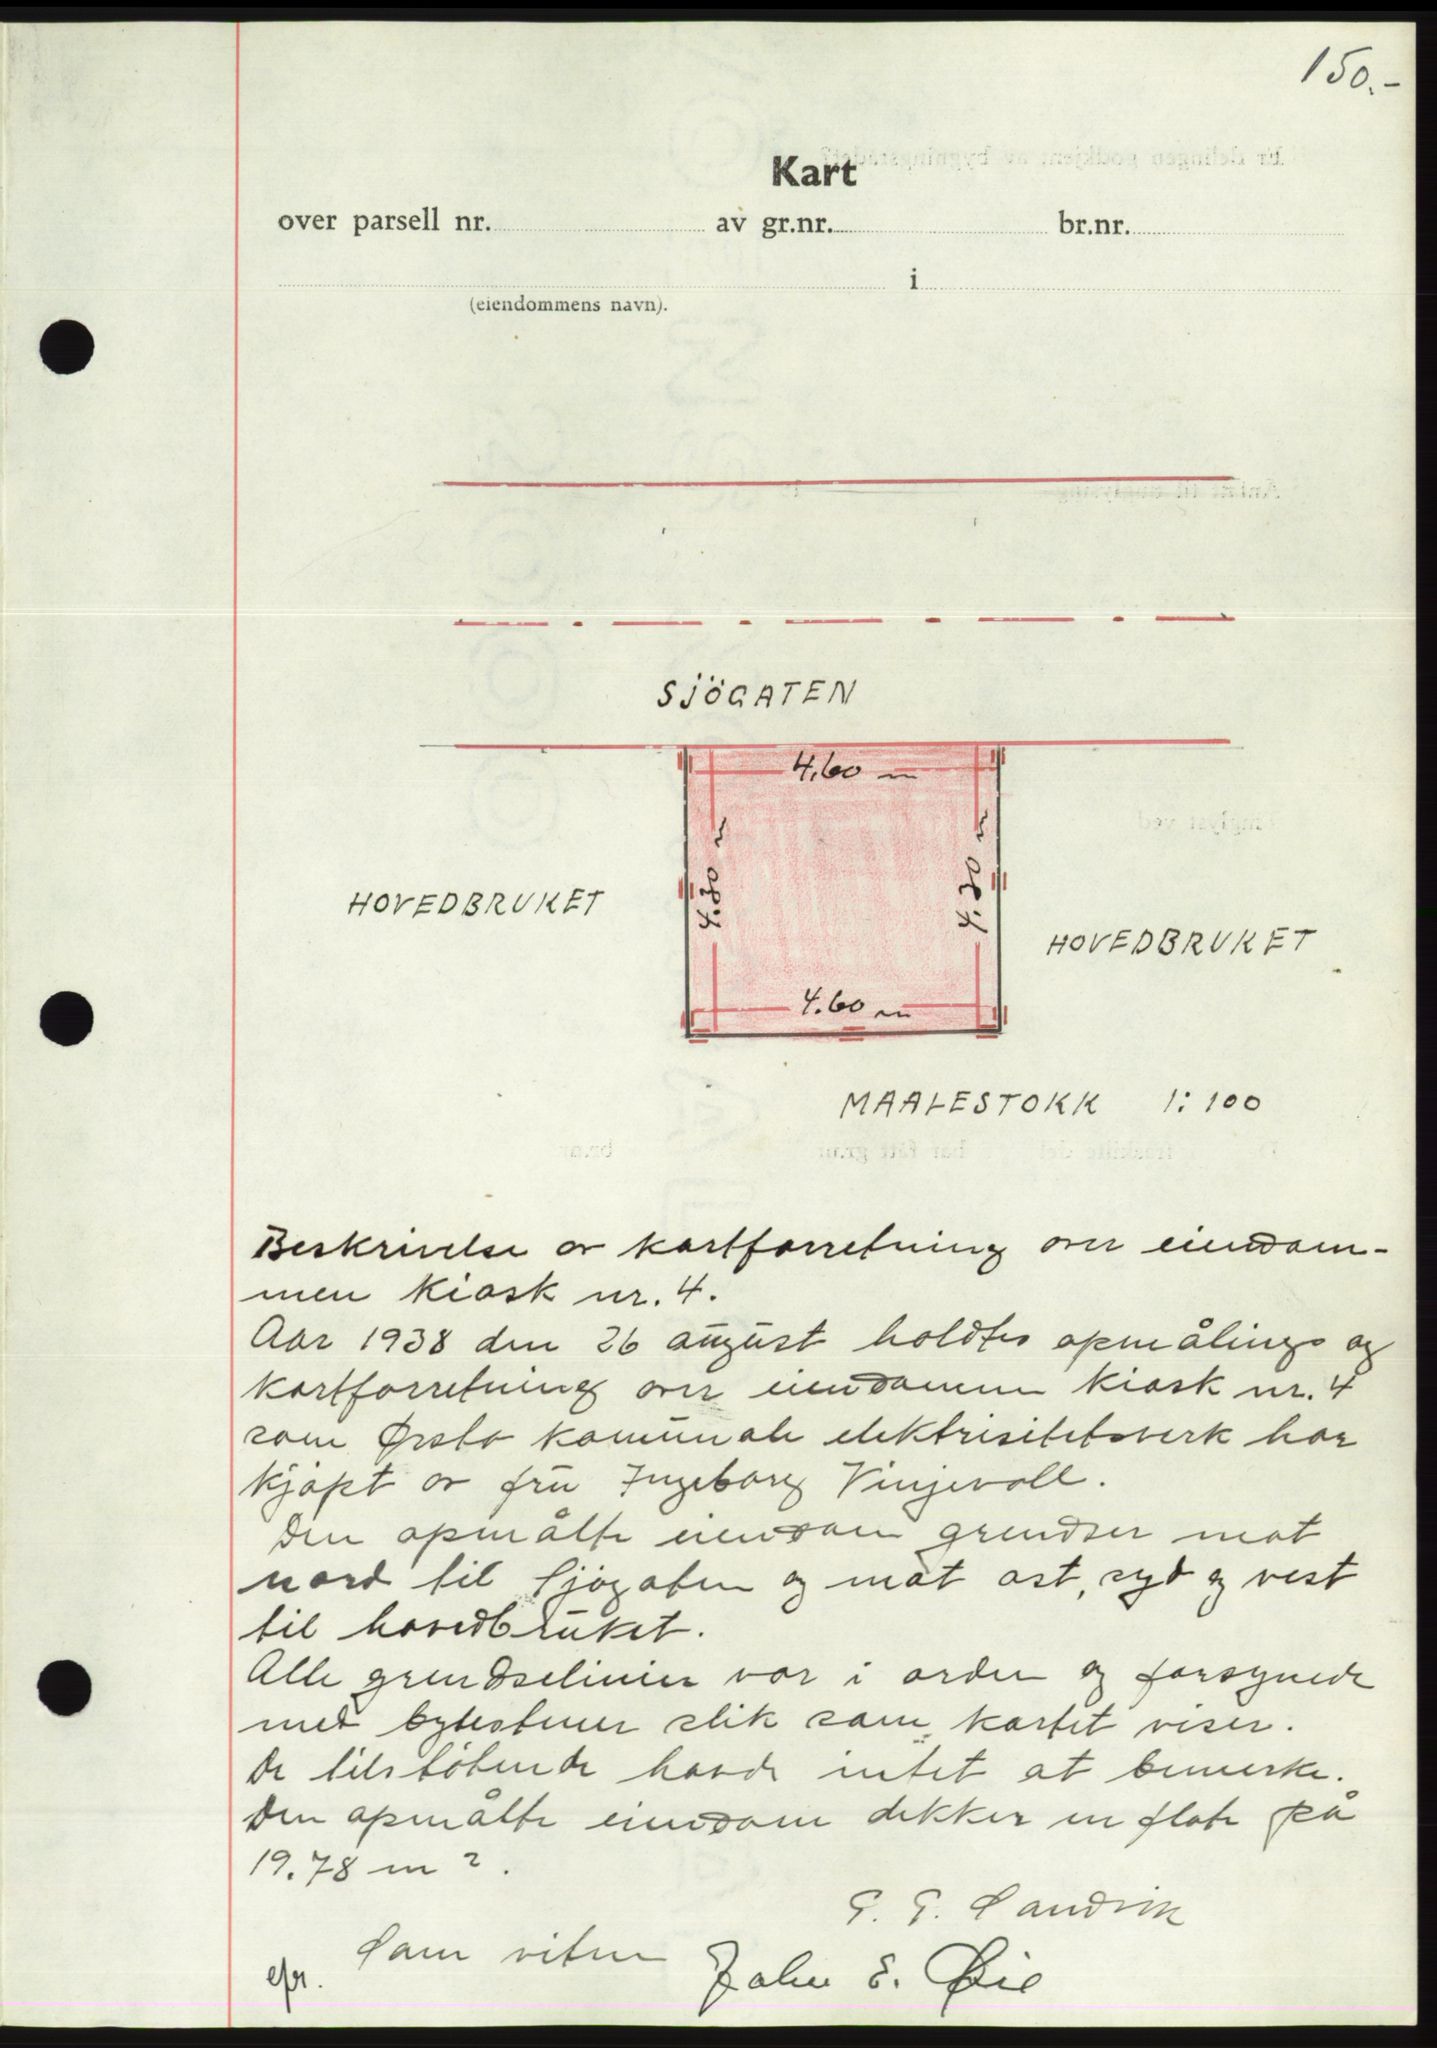 150.-
Kart
over parsell nr. av gr.nr. br.nr.
i
(eiendommens navn).
SJÖGATEN
4.60 m
4.30 m
4.30 m
HOVEDBRUKET
HOVEDBRUKET
4.60 m
MAALESTOKK 1:100
Beskrivelse av kartforretning over eiendom-
men kiosk nr. 4.
Aar 1938 den 26 august holdtes opmålings og
kartforretning over eiendommen kiosk nr. 4
som Ørsta komunale elektrisitetsverk har
kjøpt av fru Ingeborg Vinjevoll.
Den opmålte eiendom grendser mot
nord til Sjøgaten og mot øst, syd og vest
til hovedbruket.
Alle grendselinier var i orden og forsynede
med bytestener slik som kartet viser.
De tilstøtende havde intet at bemerke.
Den opmålte eiendom dekker en flate på
19.78 m2.
Sandvik
Som vitne
John E. Øie